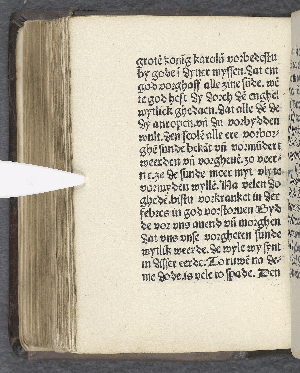 grotē konīg karolū vorbedestu
by gode ī dyner myssen. dat em
god vorghaff alle zine sūde. wē
te god heft dy dorch dē enghel
wytlick ghedaen. dat alle de de
dy anropen. vn̄ du vorbydden
wult. den scolē alle ere vorbor
ghē sunde bekāt vn̄ vormydert
weerden vn̄ vorgheuē. zo veer
n eze de sunde meer myt vlyte
vormyden wylle. Na velen do
ghedē. bistu vorkranket in der
febres in god vorstoruen Byd
de vor vns auend vn̄ morghen
dat vns vnse vorgheten sunde
wytlik weerde. de wyle wy synt
in desser eerde. To ruwē na de
me dode. is vele to spade. Den